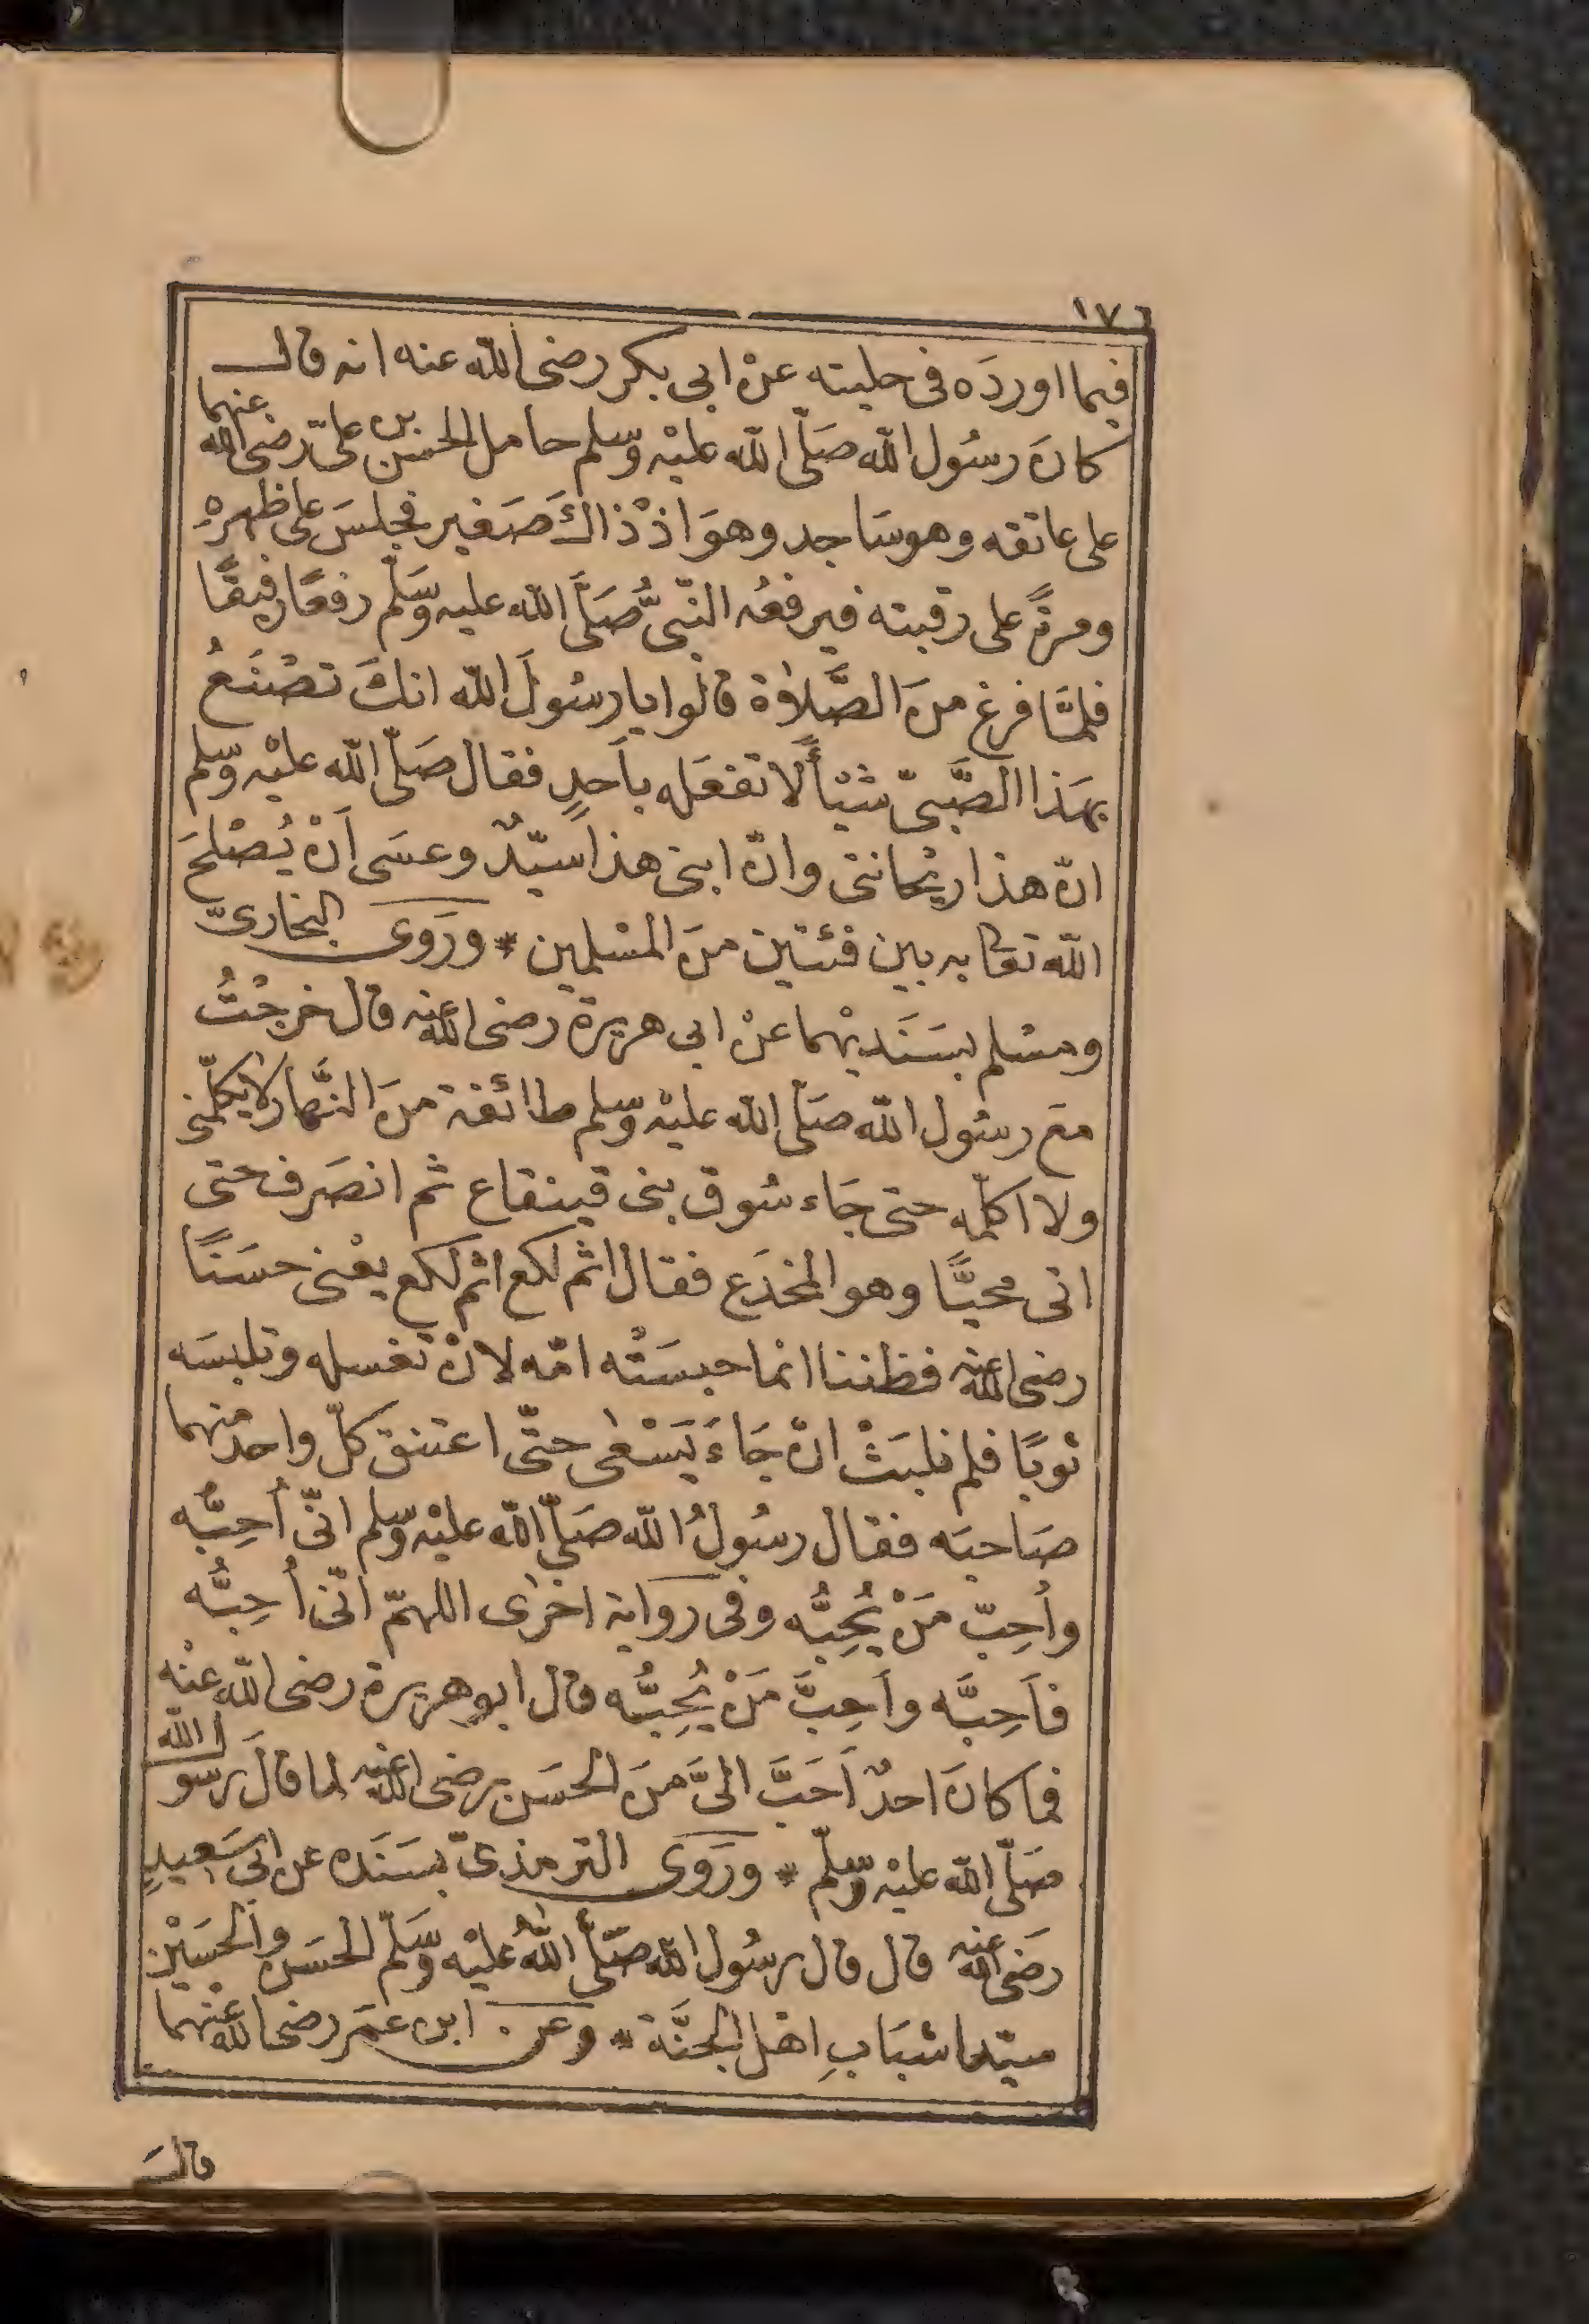 ١٧٦
فيما اوردَه فى حليته عنْ ابى بكر رضى الله عنه انه قال
كانَ رسُول الله صَلّى الله عليْه وسلم حامل الحسن بن علىّ رضى الله عنهما
على عاتقه وهو سَاجد وهوَ اذْ ذاكَ صَغير فجلسَ على ظهرهِ
ومرةً على رقبته فيرفعُه النّبىُّ صَلَّى الله عليه وَسَلّم رفعًا رفيقًا
فلمَّا فرغ منَ الصَّلاة قالوا يا رسُولَ الله انكَ تصْنَعُ
بهَذا الصَّبىّ شيئاً لا تفعَله بأحدٍ فقال صَلّى الله عليْه وسلم
انّ هذا ريْحانتى وانّ ابنى هذا سيّدٌ وعسَى اَنْ يُصْلحَ
الله تعا به بين فئتين منَ المسْلمين * ورَوى البخارىّ
ومسْلم بسَنَديْهما عنْ ابى هريرة رضى الله عنه قال خرجْتُ
معَ رسُول الله صَلّى الله عليْه وسلم طائفة منَ النَّهار لا يكلّمنى
ولا اكلّمه حتى جَاء سُوق بنى قينقاع ثم انصَرف حتى
اتى محيًّا وهو المخدَع فقال اثم لكع اثم لكع يعْنى حسَنًا
رضى الله عنه فظننا انما حبسَتْه امّه لانْ تغسله وتلبسَه
ثوبًا فلم نلبَثْ انْ جَاءَ يَسْعٰى حتّى اعتنق كلّ واحد منهما
صَاحبَه فقال رسُولُ الله صَلّى الله عليْه وسلم انّى أُحِبُّه
وأُحِبّ مَنْ يُحِبُّه وفى رواية اخرٰى اللهمّ انّى أُحِبُّه
فأَحِبَّه وأَحِبَّ مَنْ يُحِبُّه قال ابو هريرة رضى الله عنْه
فما كانَ احدٌ اَحَبَّ الىَّ منَ الحسَن رضى الله عنه لما قالَ رسول الله
صَلّى الله عليْه وسلّم * ورَوَى الترمذىّ بسَنَده عن ابى سَعيدٍ
رضَى الله عنه قال قال رسُول الله صَلّى اللهُ عليْه وَسَلّم الحسَن والحسَيْن
سيّدا شبَابِ اهْل الجنَّة * وعن ابن عمَر رضى الله عنْهما
قال